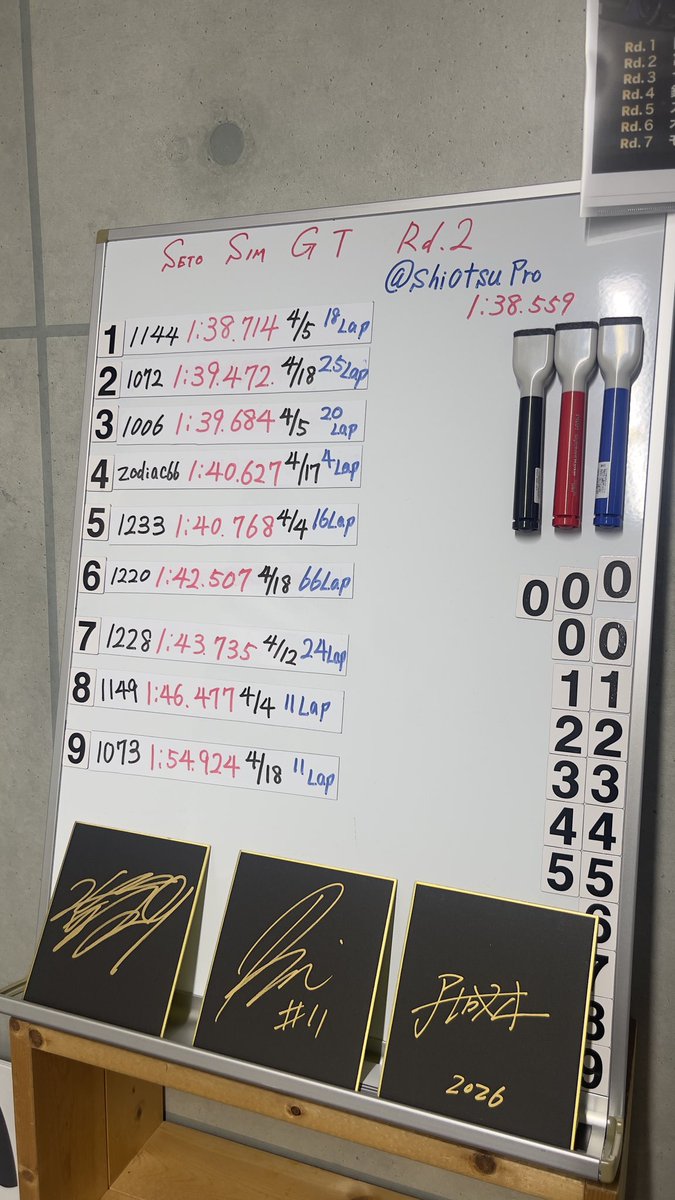 Rd.1
Rd.2
Rd.3
Rd.4
Rd.5
Rd.6
Rd.7
SETO SIM GT Rd.2
@Shiotsu Pro
1:38.559
1 1144 1:38.714 4/5 18Lap
2 1072 1:39.472. 4/18 25Lap
3 1006 1:39.684 4/5 20Lap
4 zodiac66 1:40.627 4/17 4Lap
5 1233 1:40.768 4/4 16Lap
6 1220 1:42.507 4/18 66Lap
7 1228 1:43.735 4/12 24Lap
8 1149 1:46.477 4/4 11Lap
9 1073 1:54.924 4/18 11Lap
0 0 0
0 0
1 1
2 2
3 3
4 4
5 5
6
7
8
9
#11
2026